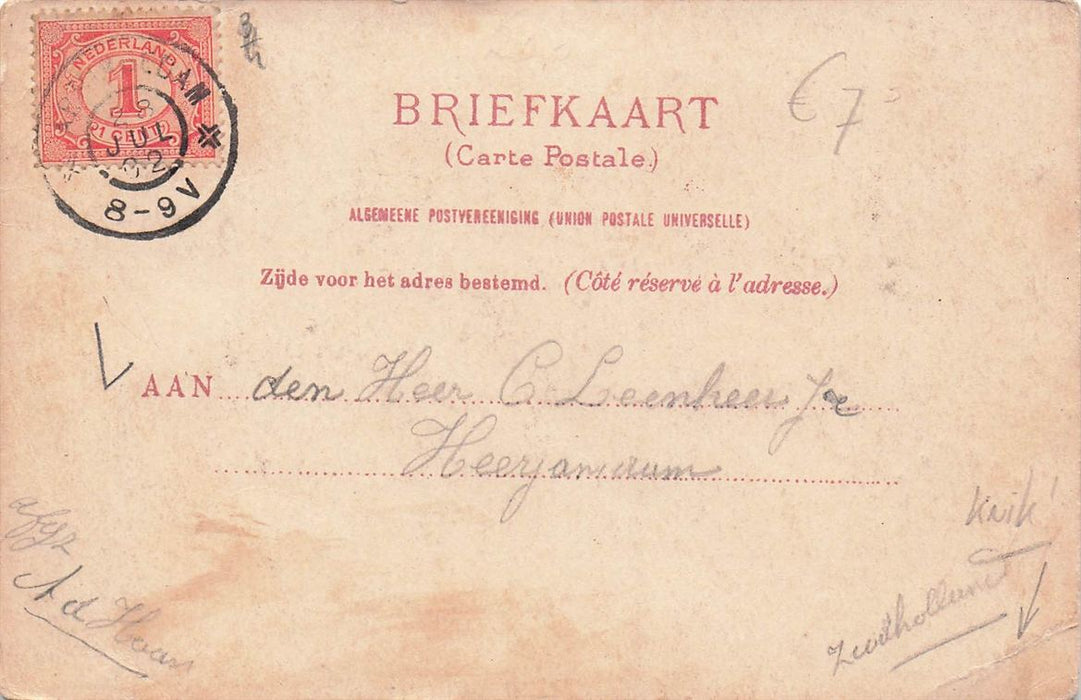 NEDERLAND
1
CENT
DAM
28
JUL
02
8-9V
€7
BRIEFKAART
(Carte Postale.)
ALGEMEENE POSTVEREENIGING (UNION POSTALE UNIVERSELLE)
Zijde voor het adres bestemd. (Côté réservé à l'adresse.)
AAN den Heer C. Leenheer Jr
Heerjansdam
Knik!
afgz
A d Haan
Zuidholland